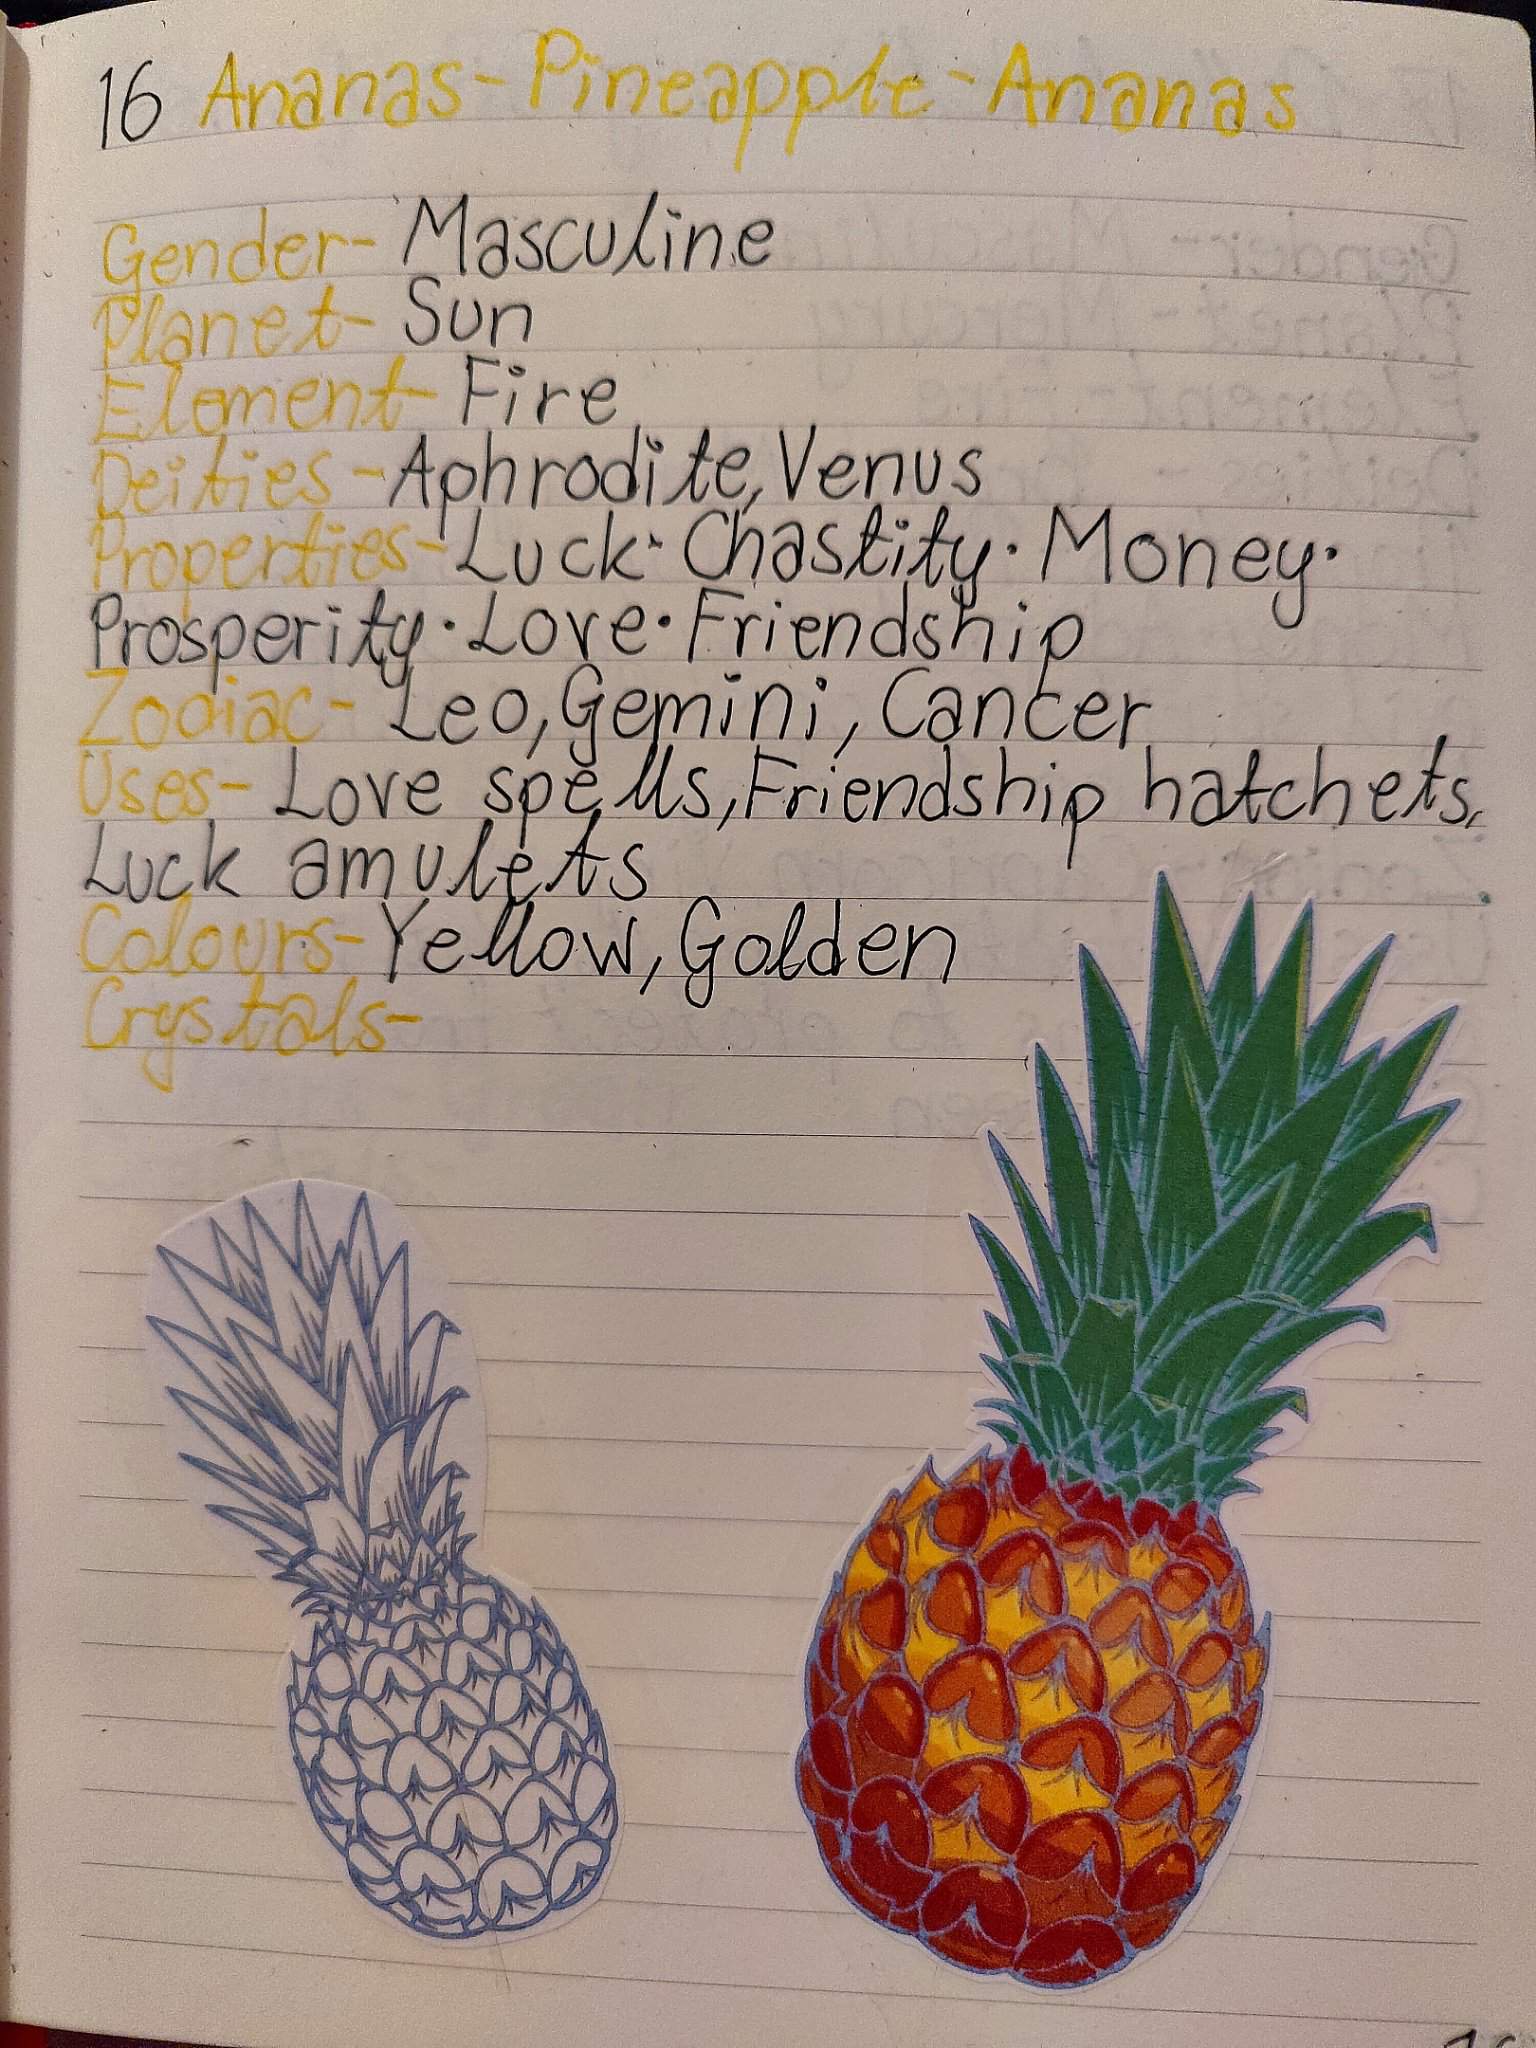 16 Ananas-Pineapple-Ananas
Gender- Masculine
Planet- Sun
Element- Fire
Deities-Aphrodite, Venus
Properties-Luck·Chastity·Money·
Prosperity·Love·Friendship
Zodiac- Leo, Gemini, Cancer
Uses- Love spells, Friendship hatchets,
Luck amulets
Colours-Yellow, Golden
Crystals-